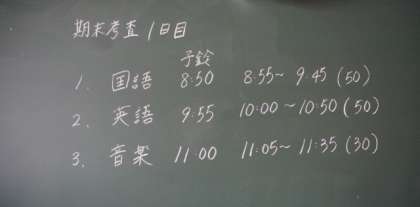 期末考査 1日目
予鈴
1. 国語 8:50 8:55~ 9:45 (50)
2. 英語 9:55 10:00 ~10:50 (50)
3. 音楽 11:00 11:05~ 11:35 (30)